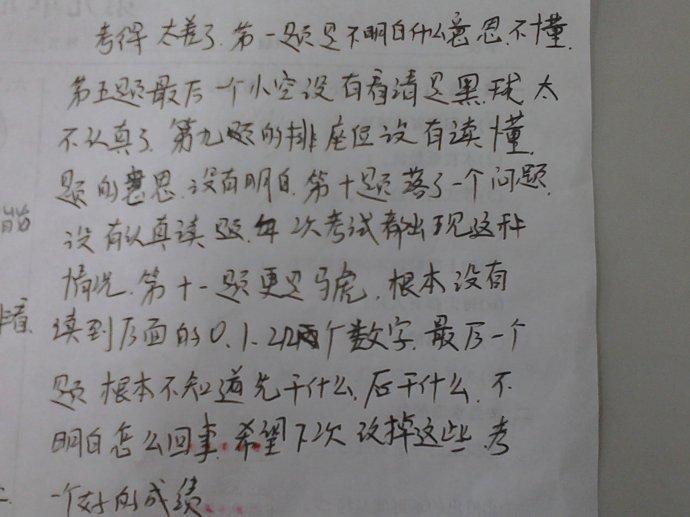 考得太差了.第一题是不明白什么意思.不懂.
第五题最后一个小空没有看清是黑球太
不认真了.第九题的排座位没有读懂.
题的意思.没有明白.第十题落了一个问题.
没有认真读题.每次考试都出现这种
情况.第十一题更是马虎.根本没有
读到后面的0.1.2几个数字.最后一个
题根本不知道先干什么.后干什么.不
明白怎么回事.希望下次改掉这些.考
一个好的成绩
看.